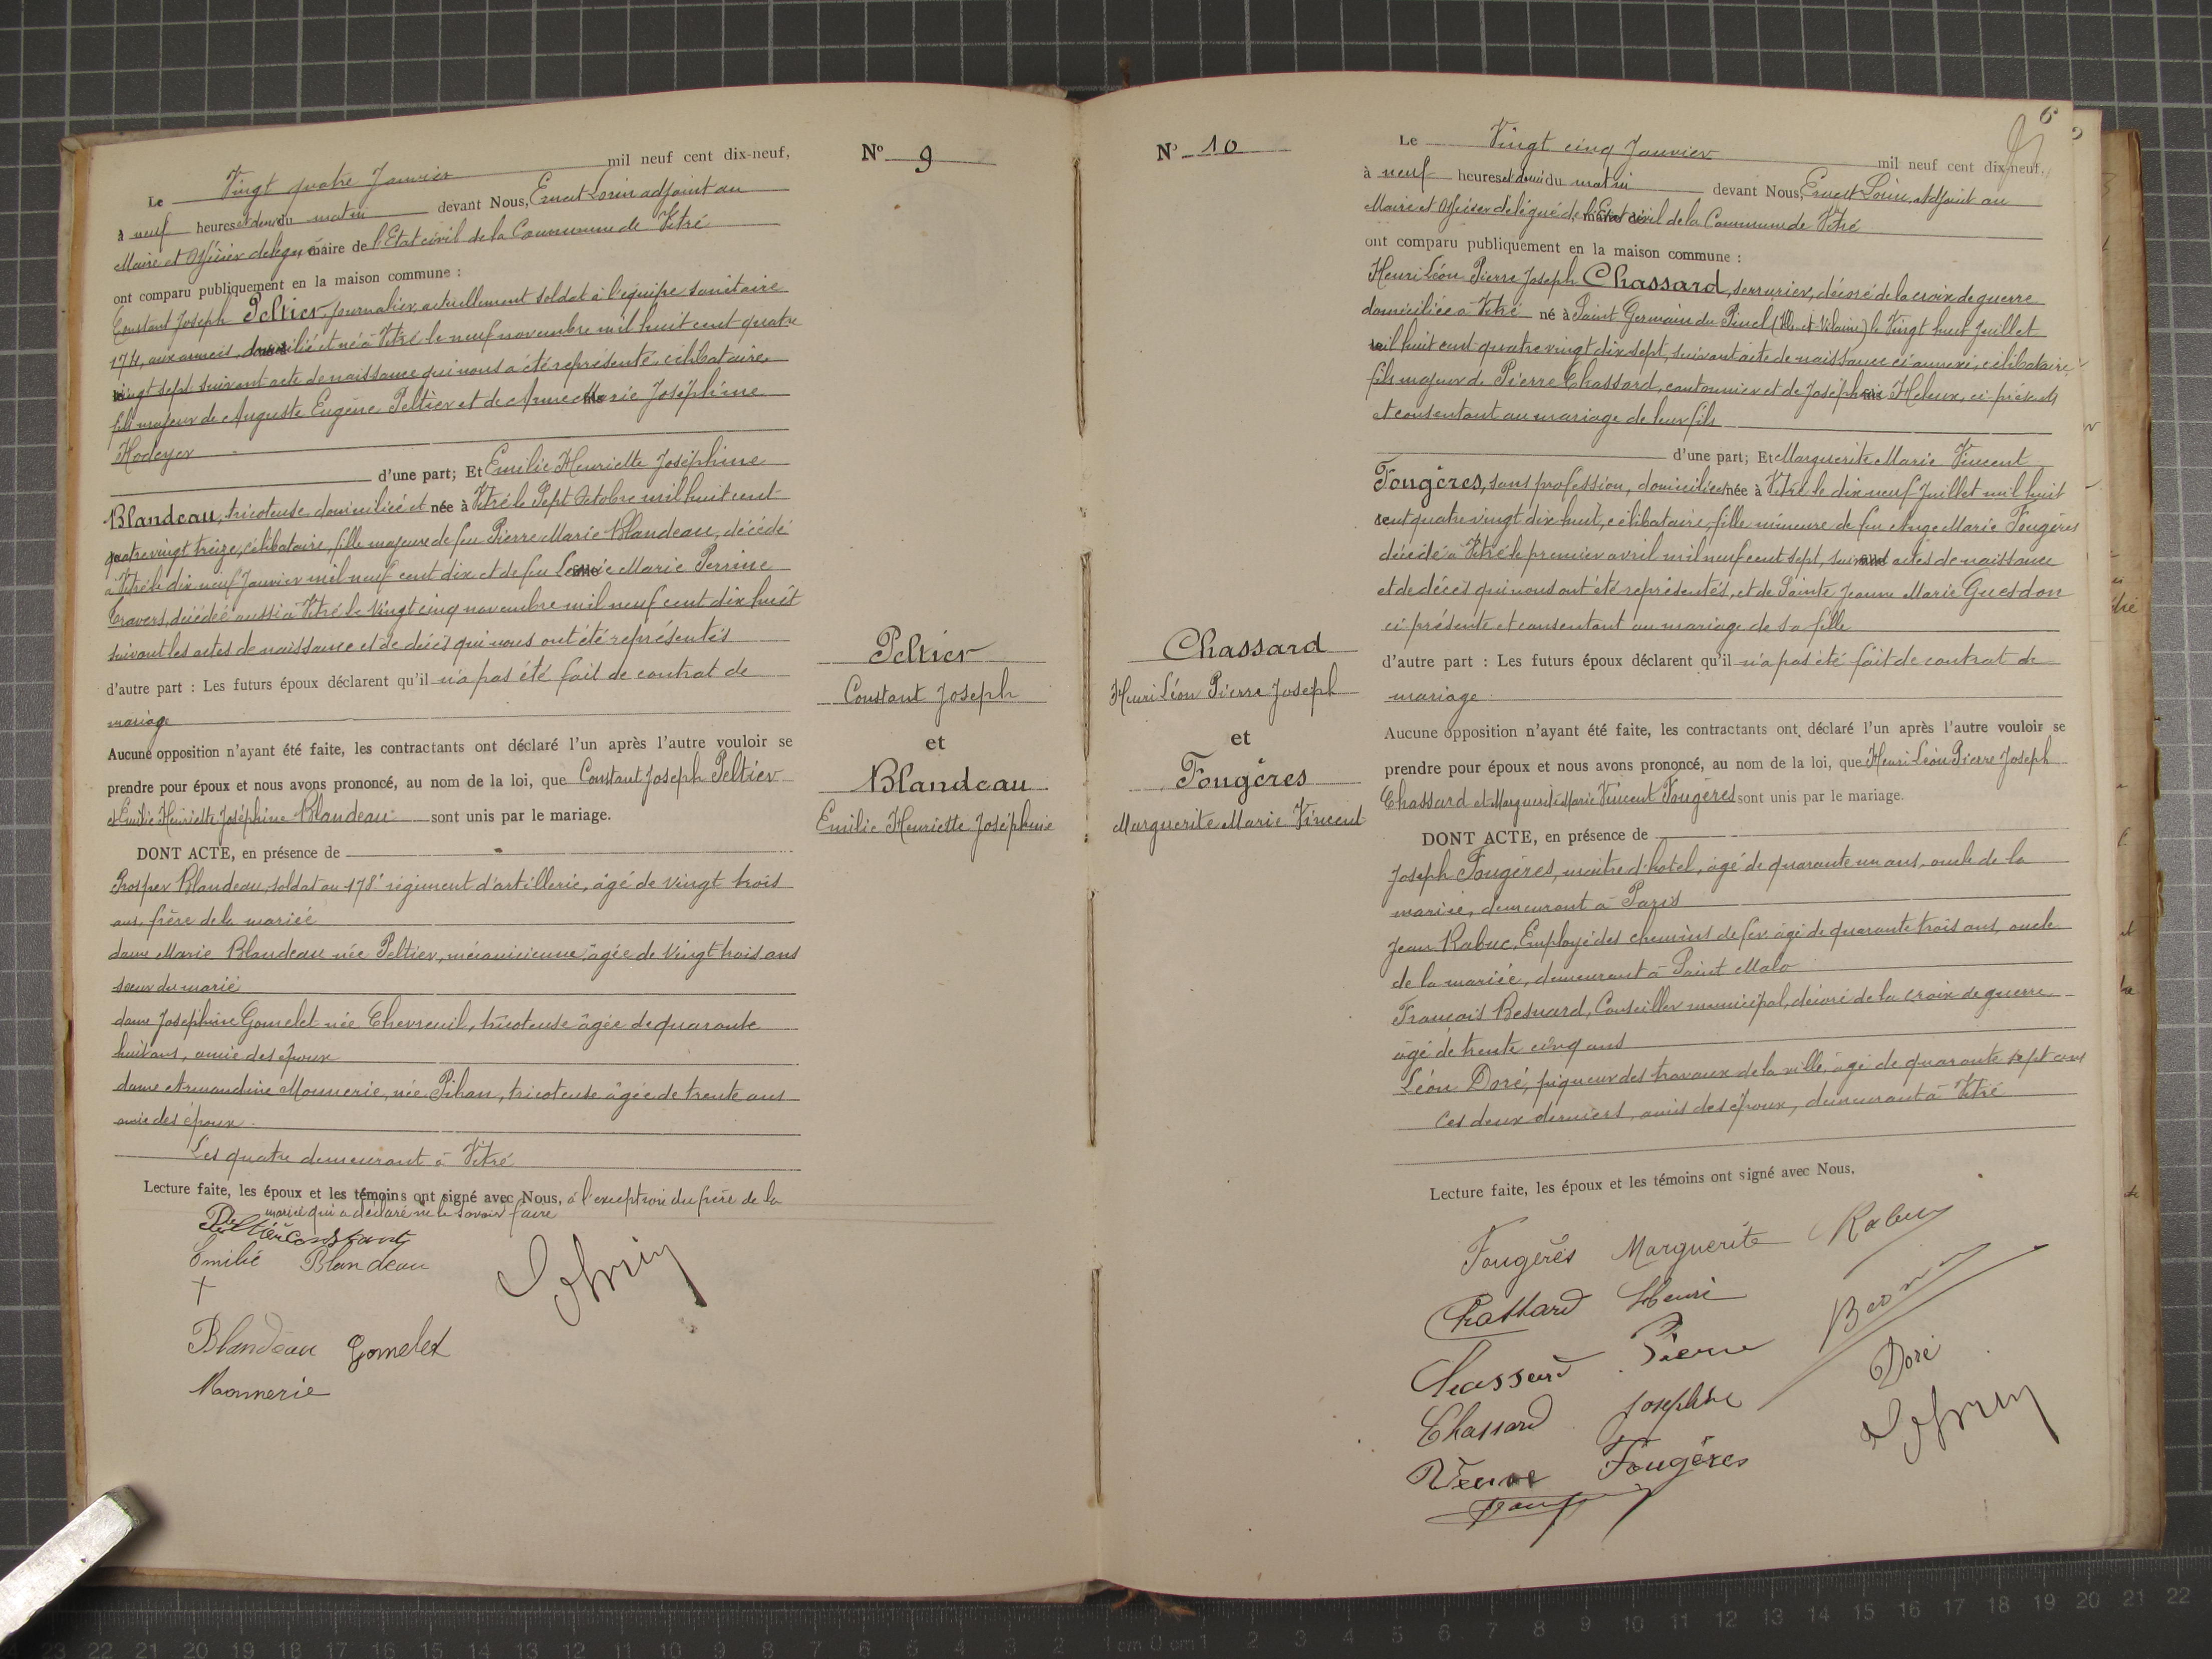 Le Vingt quatre Janvier mil neuf cent dix-neuf,
à neuf heures et demi du matin devant Nous, Ernest Lorin adjoint au
Maire et Officier délégué maire de l'Etat civil de la Commune de Vitré
ont comparu publiquement en la maison commune :
Constant Joseph Peltier, journalier, actuellement soldat à l'équipe sanitaire
174, aux armées, domicilié et né à Vitré le neuf novembre mil huit cent quatre
vingt sept suivant acte de naissance qui nous a été représenté, célibataire
fils majeur de Auguste Eugène Peltier et de Anne Marie Joséphine
Hodeyer
d'une part; Et Emilie Henriette Joséphine
Blandeau, tricoteuse domiciliée et née à Vitré le Sept Octobre mil huit cent
quatre vingt treize, célibataire, fille majeure de feu Pierre Marie Blandeau, décédé
à Vitré le dix neuf Janvier mil neuf cent dix et de feu Marie Perrine
Travers, décédée aussi à Vitré le Vingt cinq novembre mil neuf cent dix huit
suivant les actes de naissance et de décès qui nous ont été représentés
d'autre part : Les futurs époux déclarent qu'il n'a pas été fait de contrat de
mariage
Aucune opposition n'ayant été faite, les contractants ont déclaré l'un après l'autre vouloir se
prendre pour époux et nous avons prononcé, au nom de la loi, que Constant Joseph Peltier
et Emilie Henriette Joséphine Blandeau sont unis par le mariage.
DONT ACTE, en présence de
Prosper Blandeau, soldat au 178e régiment d'artillerie, âgé de vingt trois
ans, frère de la mariée
dame Marie Blandeau née Peltier, mécanicienne, âgée de Vingt trois ans
soeur du marié
dame Josephine Gomelet née Chevreuil, tricoteuse âgée de quarante
huit ans, amie des époux
dame Armandine Monnerie, née Pihan, tricoteuse âgée de trente ans
amie des époux.
Les quatre demeurant à Vitré
Lecture faite, les époux et les témoins ont signé avec Nous, à l'exception du frère de la
mariée qui a déclaré ne le savoir faire
Peltier Constant
Emilie Blandeau
+
Blandeau Gomelet
Monnerie
Lorin
N° 9
Peltier
Constant Joseph
et
Blandeau
Emilie Henriette Joséphine
N° 10
Chassard
Henri Léon Pierre Joseph
et
Fougères
Marguerite Marie Vincent
6
Le Vingt cinq Janvier mil neuf cent dix-neuf,
à neuf heures et demi du matin devant Nous, Ernest Lorin, Adjoint au
Maire et Officier délégué de l'Etat civil de la Commune de Vitré
ont comparu publiquement en la maison commune :
Henri Léon Pierre Joseph Chassard, serrurier, décoré de la croix de guerre
domicilié à Vitré né à Saint Germain du Pinel (Ille-et-Vilaine) le Vingt huit Juillet
mil huit cent quatre vingt dix sept, suivant acte de naissance ci annexé, célibataire
fils majeur de Pierre Chassard, cantonnier et de Joséphine Heleux, ci présents
et consentant au mariage de leur fils
d'une part; Et Marguerite Marie Vincent
Fougères, sans profession, domiciliée née à Vitré le dix neuf Juillet mil huit
cent quatre vingt dix huit, célibataire, fille mineure de feu Ange Marie Fougères
décédé à Vitré le premier avril mil neuf cent sept, suivant actes de naissance
et de décès qui nous ont été représentés, et de Sainte Jeanne Marie Guesdon
ci présente et consentant au mariage de sa fille
d'autre part : Les futurs époux déclarent qu'il n'a pas été fait de contrat de
mariage.
Aucune opposition n'ayant été faite, les contractants ont déclaré l'un après l'autre vouloir se
prendre pour époux et nous avons prononcé, au nom de la loi, que Henri Léon Pierre Joseph
Chassard et Marguerite Marie Vincent Fougères sont unis par le mariage.
DONT ACTE, en présence de
Joseph Fougères, maître d'hotel, âgé de quarante un ans, oncle de la
mariée, demeurant à Paris
Jean Rabuc, Employé des chemins de fer âgé de quarante trois ans, oncle
de la mariée, demeurant à Saint Malo
François Besnard, Conseiller municipal, décoré de la croix de guerre
âgé de trente cinq ans
Léon Doré, piqueur des travaux de la ville, âgé de quarante sept ans
Ces deux derniers, amis des époux, demeurant à Vitré
Lecture faite, les époux et les témoins ont signé avec Nous.
Fougères Marguerite Rabuc
Chassard Henri
Chassard Pierre
Chassard Josephine Doré
Veuve Fougères Lorin
23 22 21 20 19 18 17 16 15 14 13 12 11 10 9 8 7 6 5 4 3 2 1 cm 0 cm 1 2 3 4 5 6 7 8 9 10 11 12 13 14 15 16 17 18 19 20 21 22